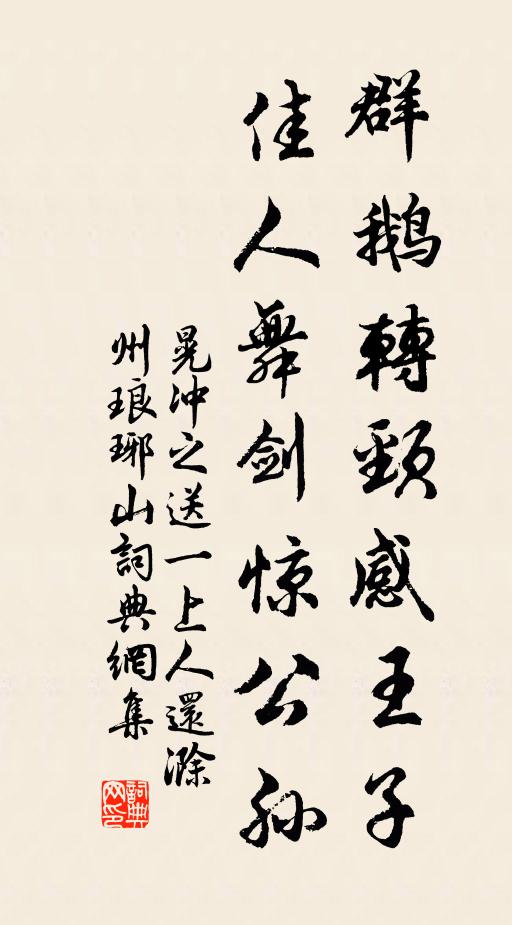 群鹅轉頸感王子
佳人舞剑惊公孙
晃冲之送一上人還滁
州琅琊山詞典網集
詞典
网印